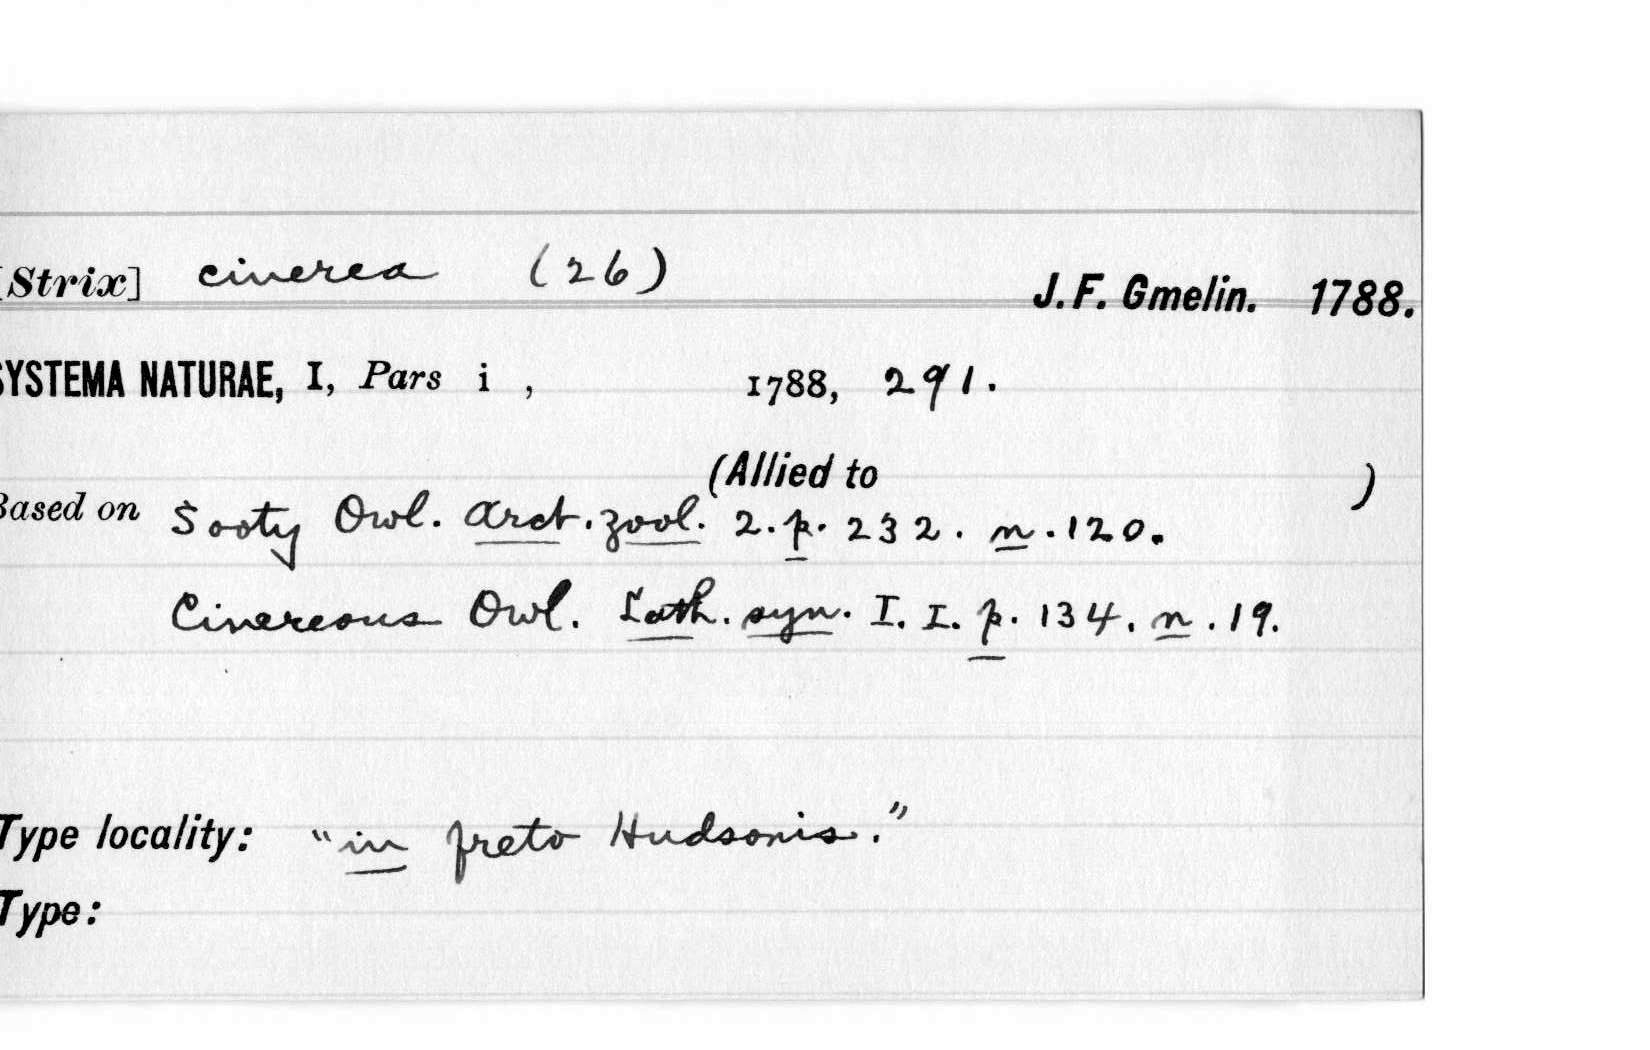 [Strix] cinerea (26) J. F. Gmelin. 1788.
SYSTEMA NATURAE, I, Pars i , 1788, 291.
(Allied to )
Based on Sooty Owl. Arct. zool. 2. p. 232. n. 120.
Cinereous Owl. Lath. syn. I. I. p. 134. n. 19.
Type locality: "in freto Hudsonis."
Type: